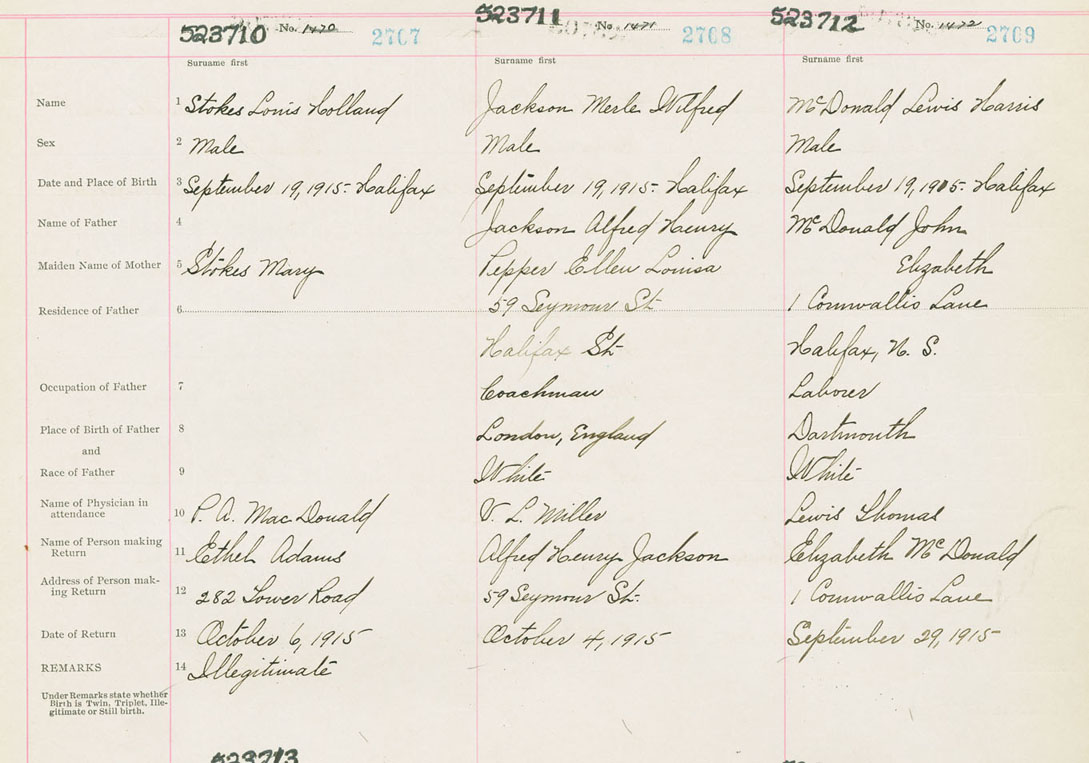 523710 No. 1470 2707 523711 No. 1471 2708 523712 No. 1472 2709
Suruame first Surname first Surname first
Name 1 Stokes Louis Holland Jackson Merle Wilfred McDonald Lewis Harris
Sex 2 Male Male Male
Date and Place of Birth 3 September 19, 1915- Halifax September 19, 1915- Halifax September 19, 1905- Halifax
Name of Father 4 Jackson Alfred Henry McDonald John
Maiden Name of Mother 5 Stokes Mary Pepper Ellen Louisa Elizabeth
Residence of Father 6 59 Seymour St. 1 Cornwallis Lane
Halifax St. Halifax, N. S.
Occupation of Father 7 Coachman Laborer
Place of Birth of Father 8 London, England Dartmouth
and
Race of Father 9 White White
Name of Physician in
attendance 10 P. A. MacDonald V. L. Miller Lewis Thomas
Name of Person making
Return 11 Ethel Adams Alfred Henry Jackson Elizabeth McDonald
Address of Person mak-
ing Return 12 282 Tower Road 59 Seymour St. 1 Cornwallis Lane
Date of Return 13 October 6, 1915 October 4, 1915 September 29, 1915
REMARKS 14 Illegitimate
Under Remarks state whether
Birth is Twin, Triplet, Ille-
gitimate or Still birth.
523713